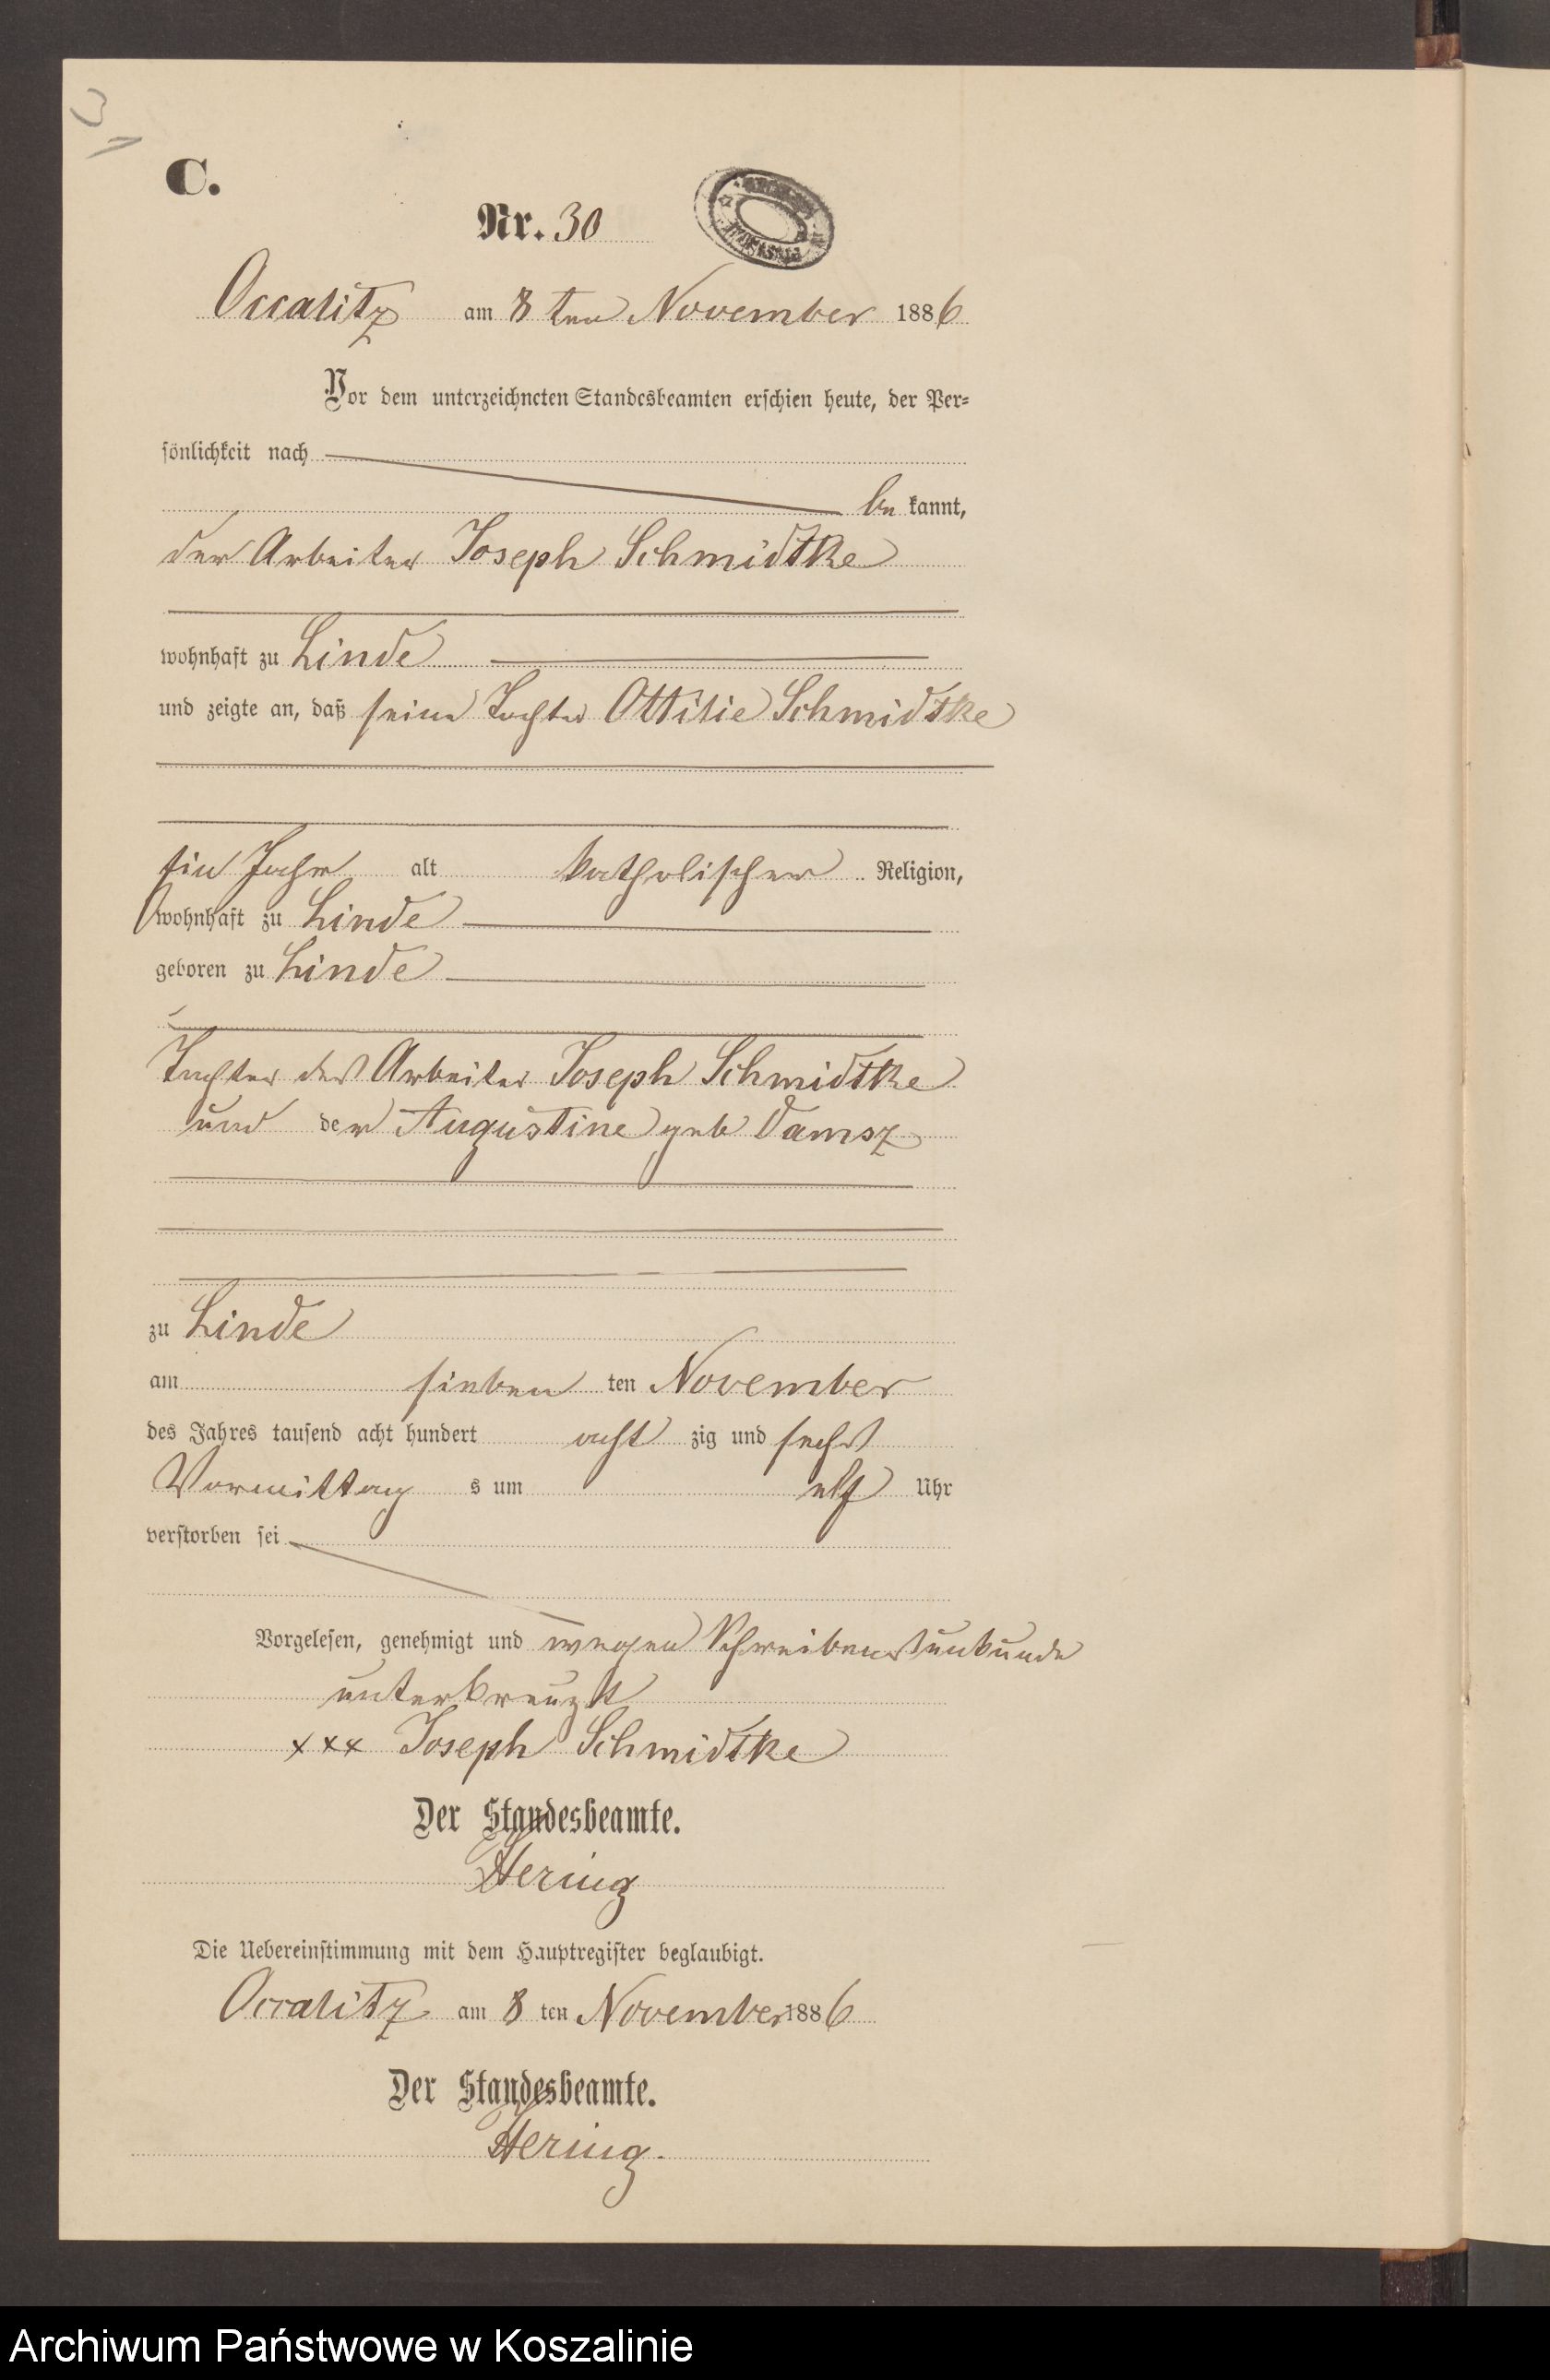 C.
Nr. 30
Occalitz am 8 ten November 1886
Vor dem unterzeichneten Standesbeamten erschien heute, der Per=
sönlichkeit nach
be kannt,
der Arbeiter Joseph Schmidtke
wohnhaft zu Linde
und zeigte an, daß seine Tochter Ottilie Schmidtke
ein Jahr alt katholischer Religion,
wohnhaft zu Linde
geboren zu Linde
Tochter des Arbeiter Joseph Schmidtke
und der Augustine geb Damsz
zu Linde
am sieben ten November
des Jahres tausend acht hundert acht zig und sechs
Vormittag s um elf Uhr
verstorben sei
Vorgelesen, genehmigt und wegen Schreibensunkunde
unterkreuzt
xxx Joseph Schmidtke
Der Standesbeamte.
Hering
Die Uebereinstimmung mit dem Hauptregister beglaubigt.
Occalitz am 8 ten November 1886
Der Standesbeamte.
Hering.
Archiwum Państwowe w Koszalinie